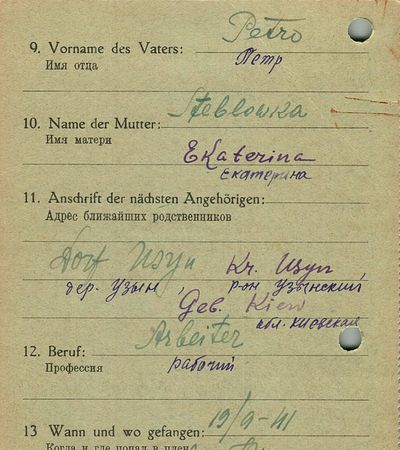 Petro
9. Vorname des Vaters:
Имя отца Петр
Steblowka
10. Name der Mutter:
Имя матери
Ekaterina
Екатерина
11. Anschrift der nächsten Angehörigen:
Адрес ближайших родственников
Dorf Usyn Kr. Usyn,
дер. Узын, р-он Узынский
Geb. Kiew
обл. киевская
Arbeiter
12. Beruf:
Профессия рабочий
19/9-41
13 Wann und wo gefangen:
Когда и где попал в плен